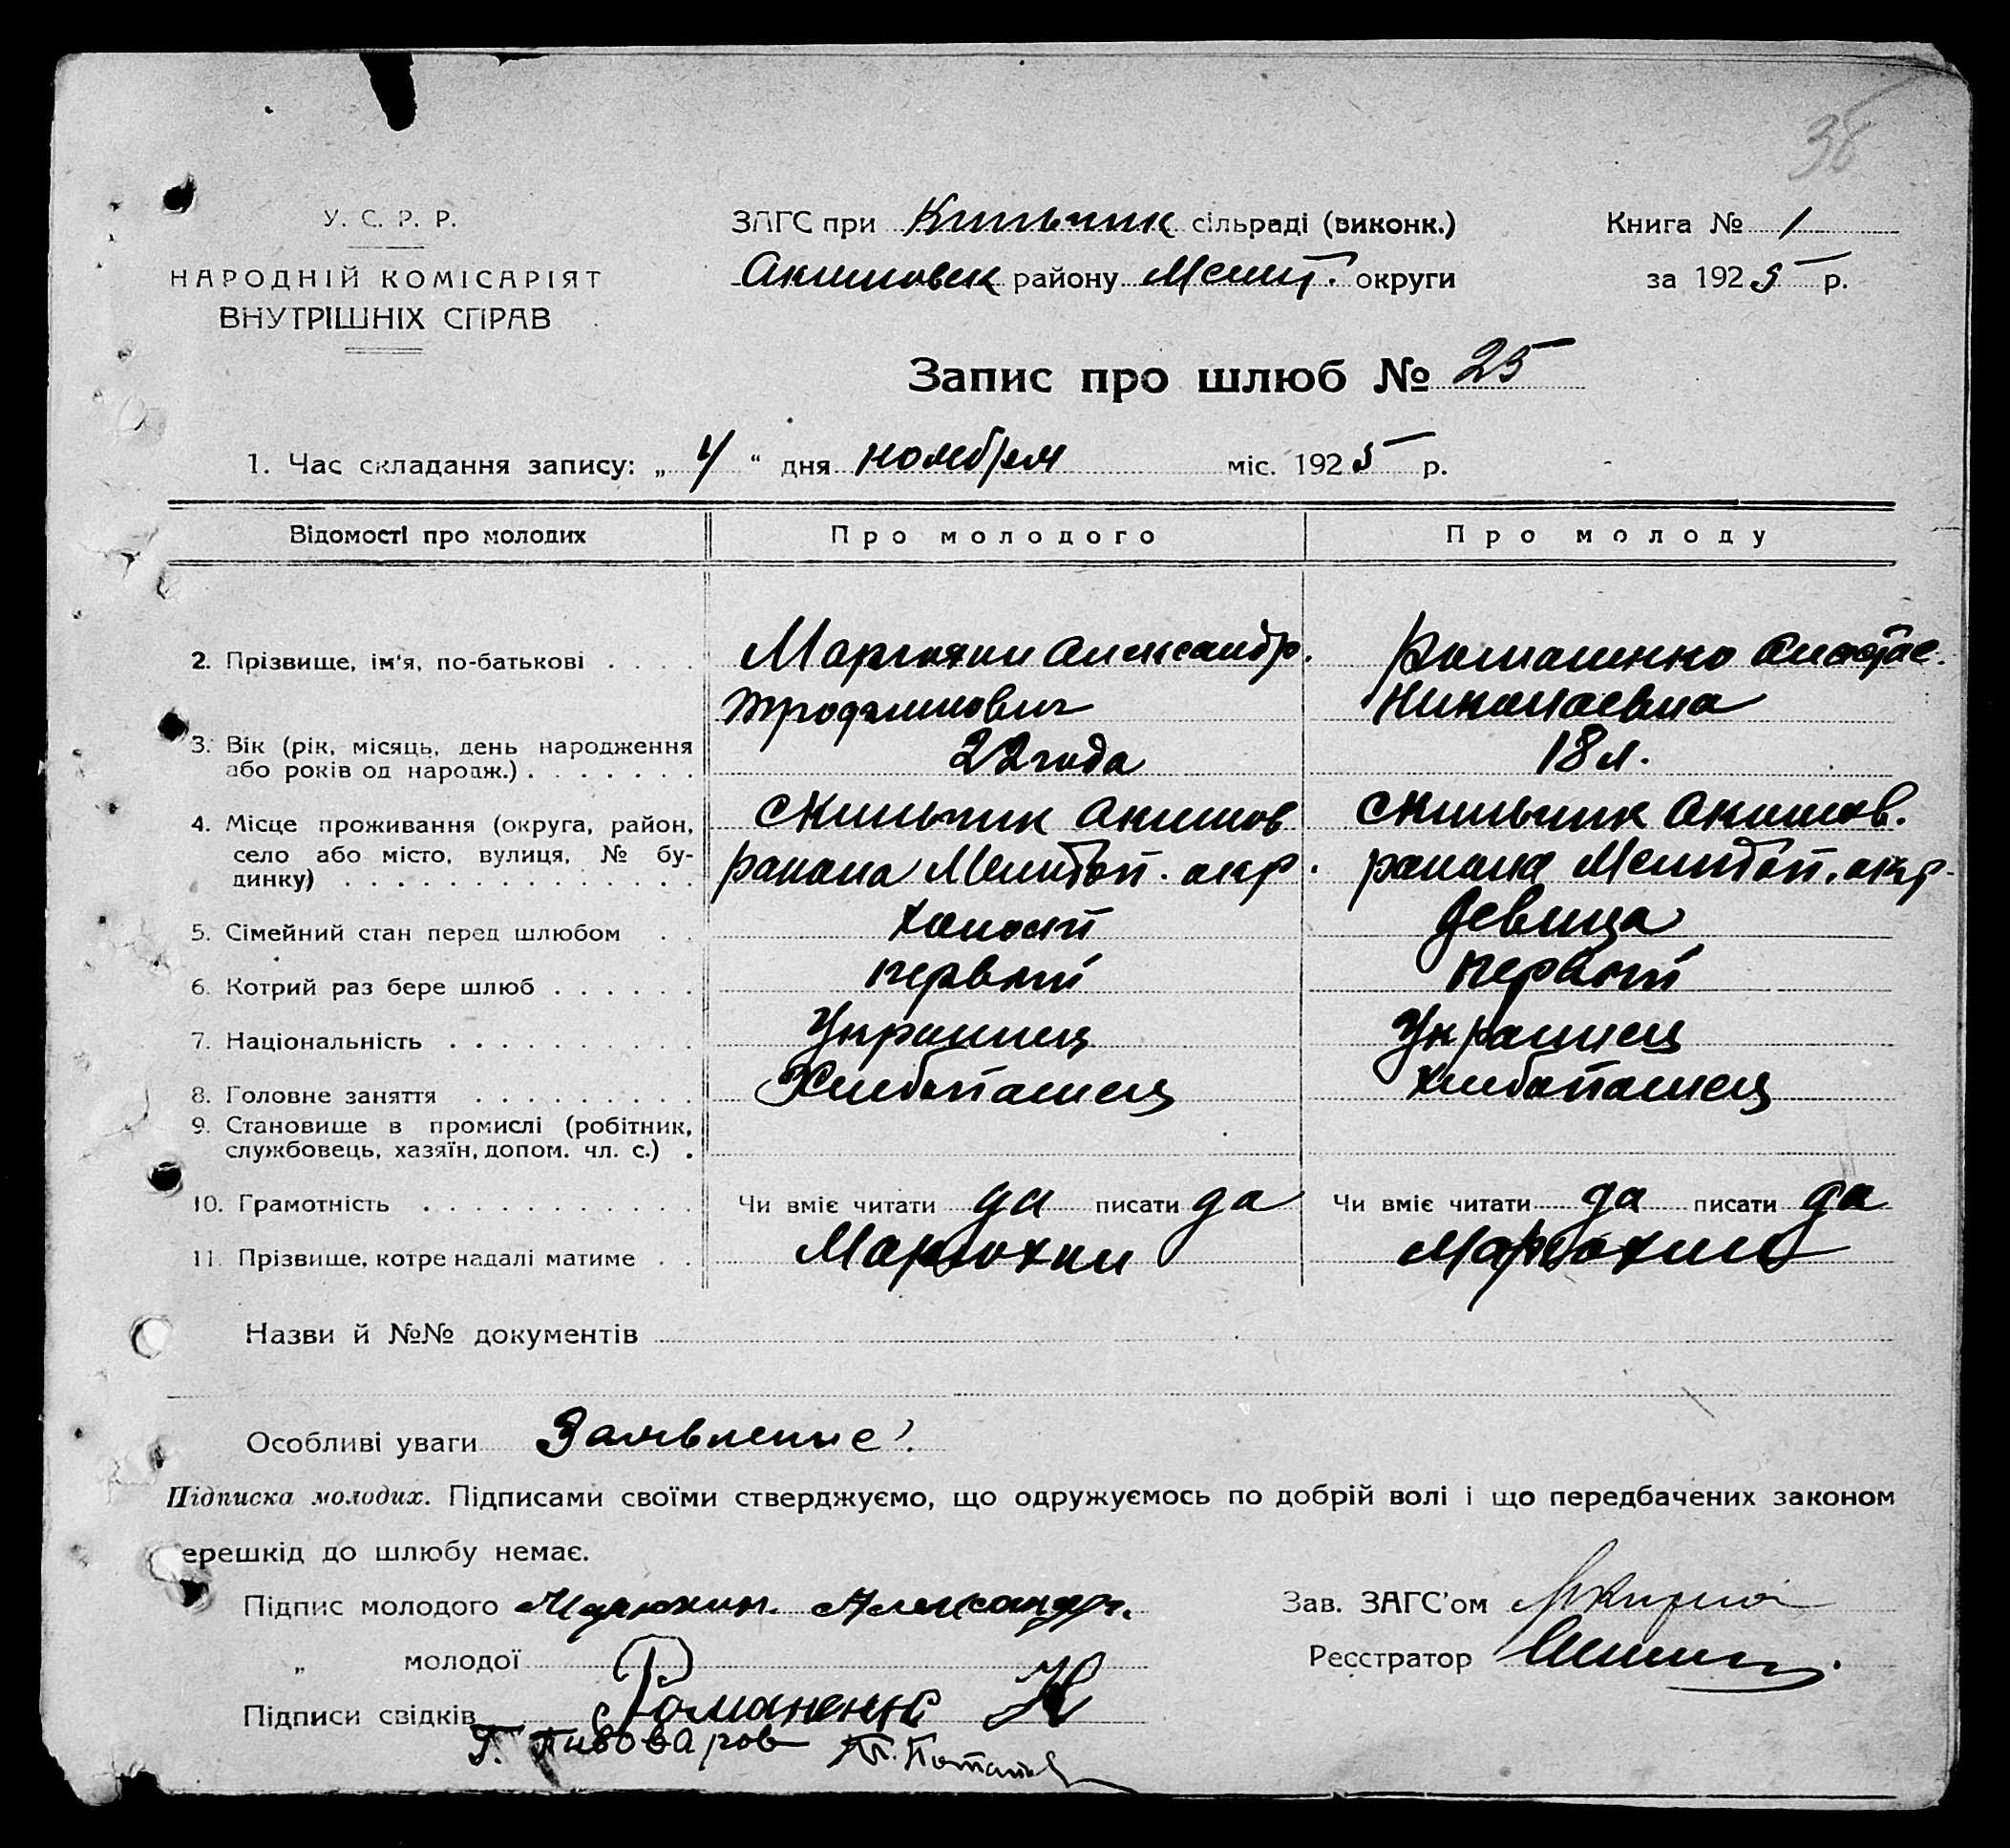 38
У. С. Р. Р.
НАРОДНІЙ КОМІСАРІЯТ
ВНУТРІШНІХ СПРАВ
ЗАГС при Кильчик сільраді (виконк.)
Акимовск району Мелит. округи
Книга № 1
за 1925 р.
Запис про шлюб № 25
1. Час складання запису: „ 4 “ дня ноября міс. 1925 р.
Відомості про молодих Про молодого Про молоду
2. Прізвище, ім'я, по-батькові Марюхин Александр. Романенко Анастас.
Трофимович Николаевна
3. Вік (рік, місяць, день народження
або років од народж.) 22 года 18 л.
4. Місце проживання (округа, район, с Кильчик Акимов с Кильчик Акимов.
село або місто, вулиця, № бу- района Мелитоп. окр. района Мелитоп. окр.
динку)
5. Сімейний стан перед шлюбом холост девица
6. Котрий раз бере шлюб первый первый
7. Національність Украинец Украинец
8. Головне заняття Хлебопашец хлебопашец
9. Становище в промислі (робітник,
службовець, хазяїн, допом. чл. с.)
10. Грамотність Чи вміє читати да писати да Чи вміє читати да писати да
11. Прізвище, котре надалі матиме Марюхин Марюхина
Назви й №№ документів
Особливі уваги Заявление
Підписка молодих. Підписами своїми стверджуємо, що одружуємось по добрій волі і що передбачених законом
ерешкід до шлюбу немає.
Підпис молодого Марюхин. Александр.
„ молодої Романенк Н
Підписи свідків
Г. Пивоваров
Зав. ЗАГС'ом
Реєстратор